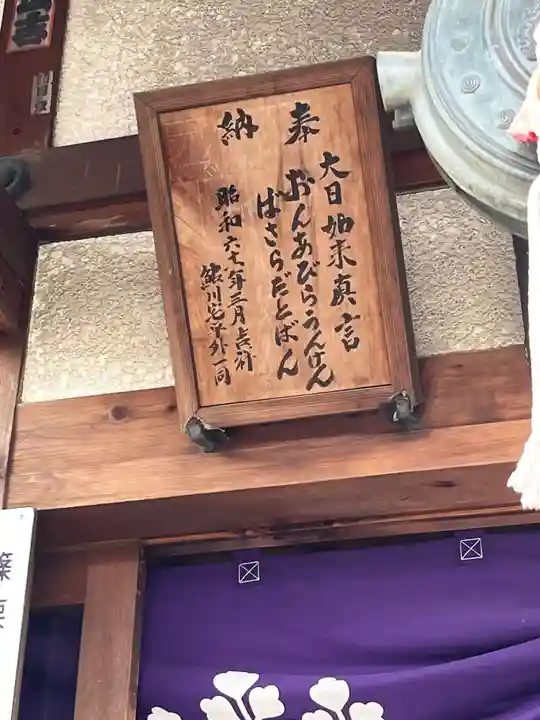 奉納
大日如来真言
おんあびらうんけん
ばさらだとばん
昭和六十年三月吉祥
鮎川宅平外一同
篠栗